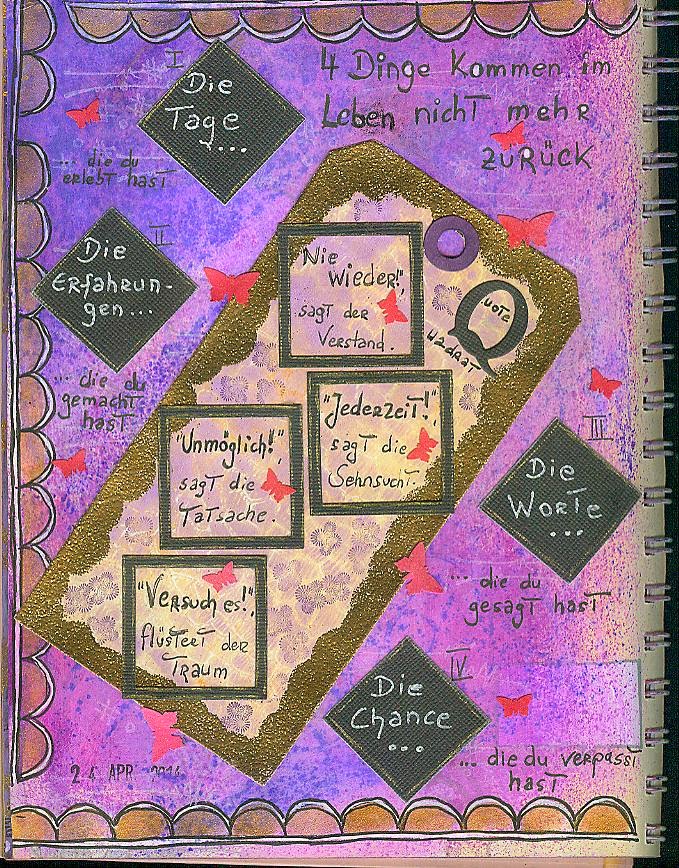 4 Dinge Kommen im
Leben nicht mehr
zuRÜCK
I
Die
Tage
...
... die du
erlebt hast
II
Die
Erfahrun-
gen...
... die du
gemacht
hast
"Nie
wieder!",
sagt der
Verstand.
Quote
Quadrat
"Jederzeit!",
sagt die
Sehnsucht.
"Unmöglich!",
sagt die
Tatsache.
"Versuch es!",
flüstert der
Traum
III
Die
Worte
...
... die du
gesagt hast
IV
Die
Chance
...
... die du verpasst
hast
24 APR. 2014